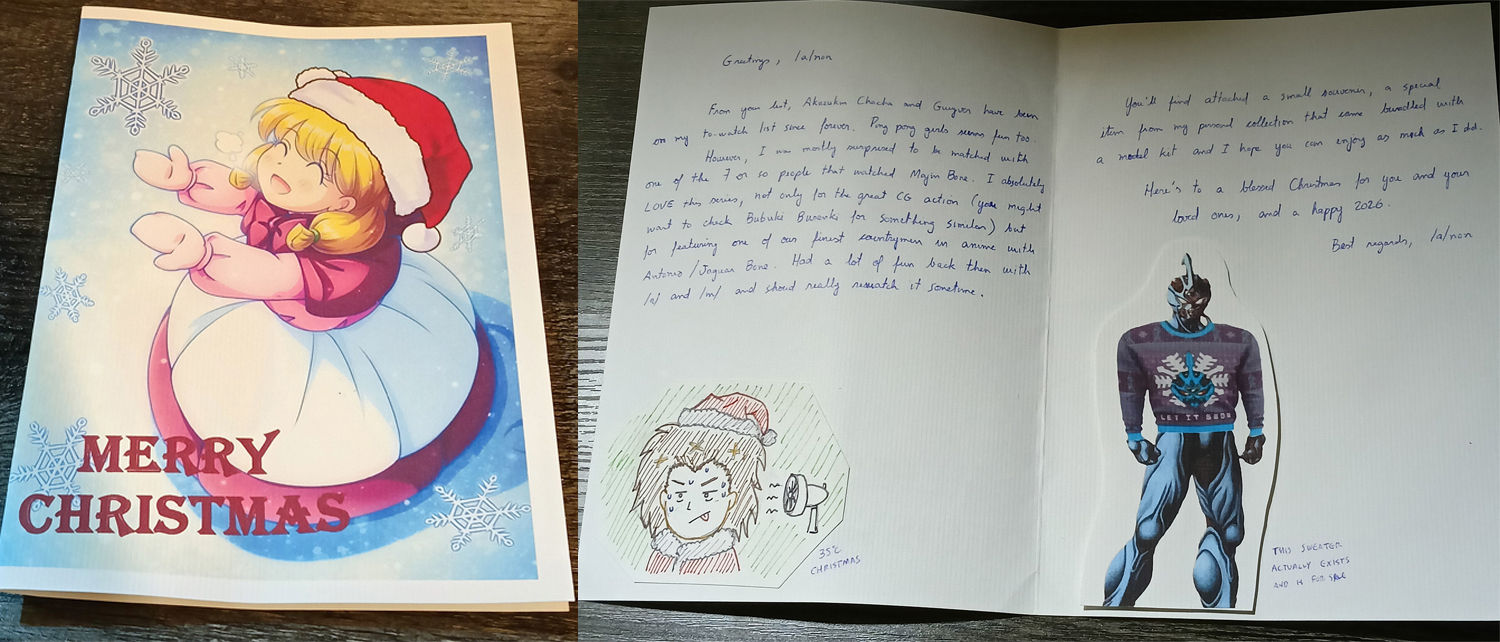 MERRY
CHRISTMAS
Greetings, /a/non
From your list, Akazukin Chacha and Guyver have been
on my to-watch list since forever. Ping pong girls seems fun too.
However, I was mostly surprised to be matched with
one of the 7 or so people that watched Majin Bone. I absolutely
LOVE this series, not only for the great CG action (you might
want to check Bubuki Buranki for something similar) but
for featuring one of our finest countrymen in anime with
Antonio/Jaguar Bone. Had a lot of fun back then with
/a/ and /m/ and should really rewatch it sometime.
35°C
CHRISTMAS
You'll find attached a small souvenir, a special
item from my personal collection that came bundled with
a model kit and I hope you can enjoy as much as I did.
Here's to a blessed Christmas for you and your
loved ones, and a happy 2026.
Best regards, /a/non
LET IT
THIS SWEATER
ACTUALLY EXISTS
AND IS FOR SALE